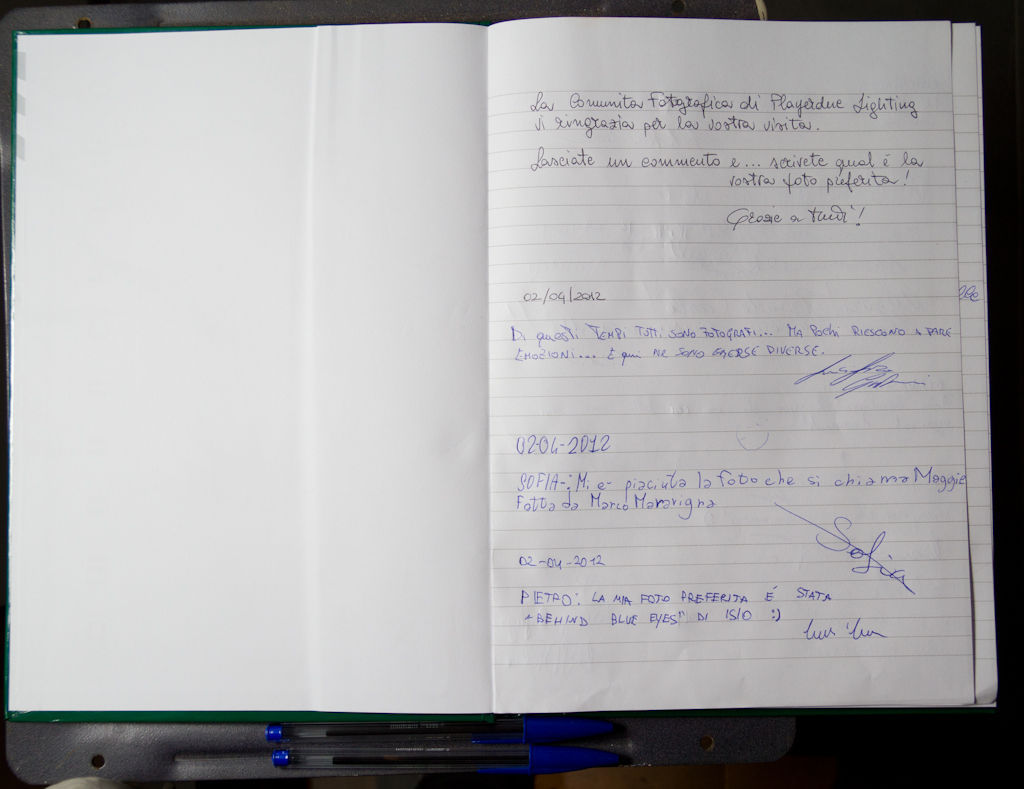 La Comunita Fotografica di Playerdue Lighting
vi ringrazia per la vostra visita.
Lasciate un commento e... scrivete qual è la
vostra foto preferita!
Grazie a tutti!
02/04/2012
Di questi TEMPI TUTTI SONO FOTOGRAFI... MA POCHI RIESCONO A FARE
EMOZIONI... E qui NE SONO EMERSE DIVERSE.
02-04-2012
SOFIA-: Mi e- piaciuta la foto che si chiama Maggie
Fatta da Marco Maravigna
Sofia
02-04-2012
PIETRO: LA MIA FOTO PREFERITA É STATA
"BEHIND BLUE EYES" DI ISIO :)